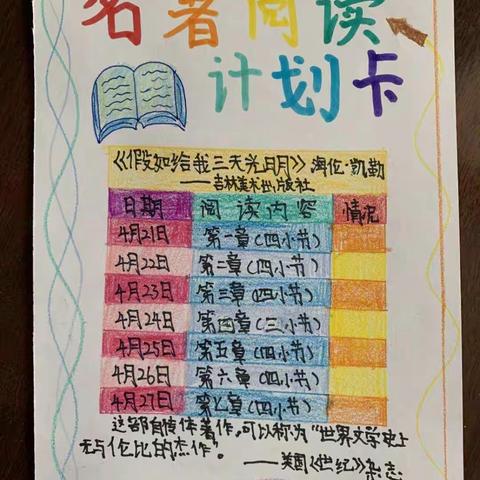 名著阅读
计划卡
《假如给我三天光明》海伦·凯勒
——吉林美术出版社
日期 阅读内容 情况
4月21日 第一章(四小节)
4月22日 第二章(四小节)
4月23日 第三章(四小节)
4月24日 第四章(三小节)
4月25日 第五章(四小节)
4月26日 第六章(四小节)
4月27日 第七章(四小节)
这部自传体著作,可以称为“世界文学史上
无与伦比的杰作”。
——美国《世纪》杂志